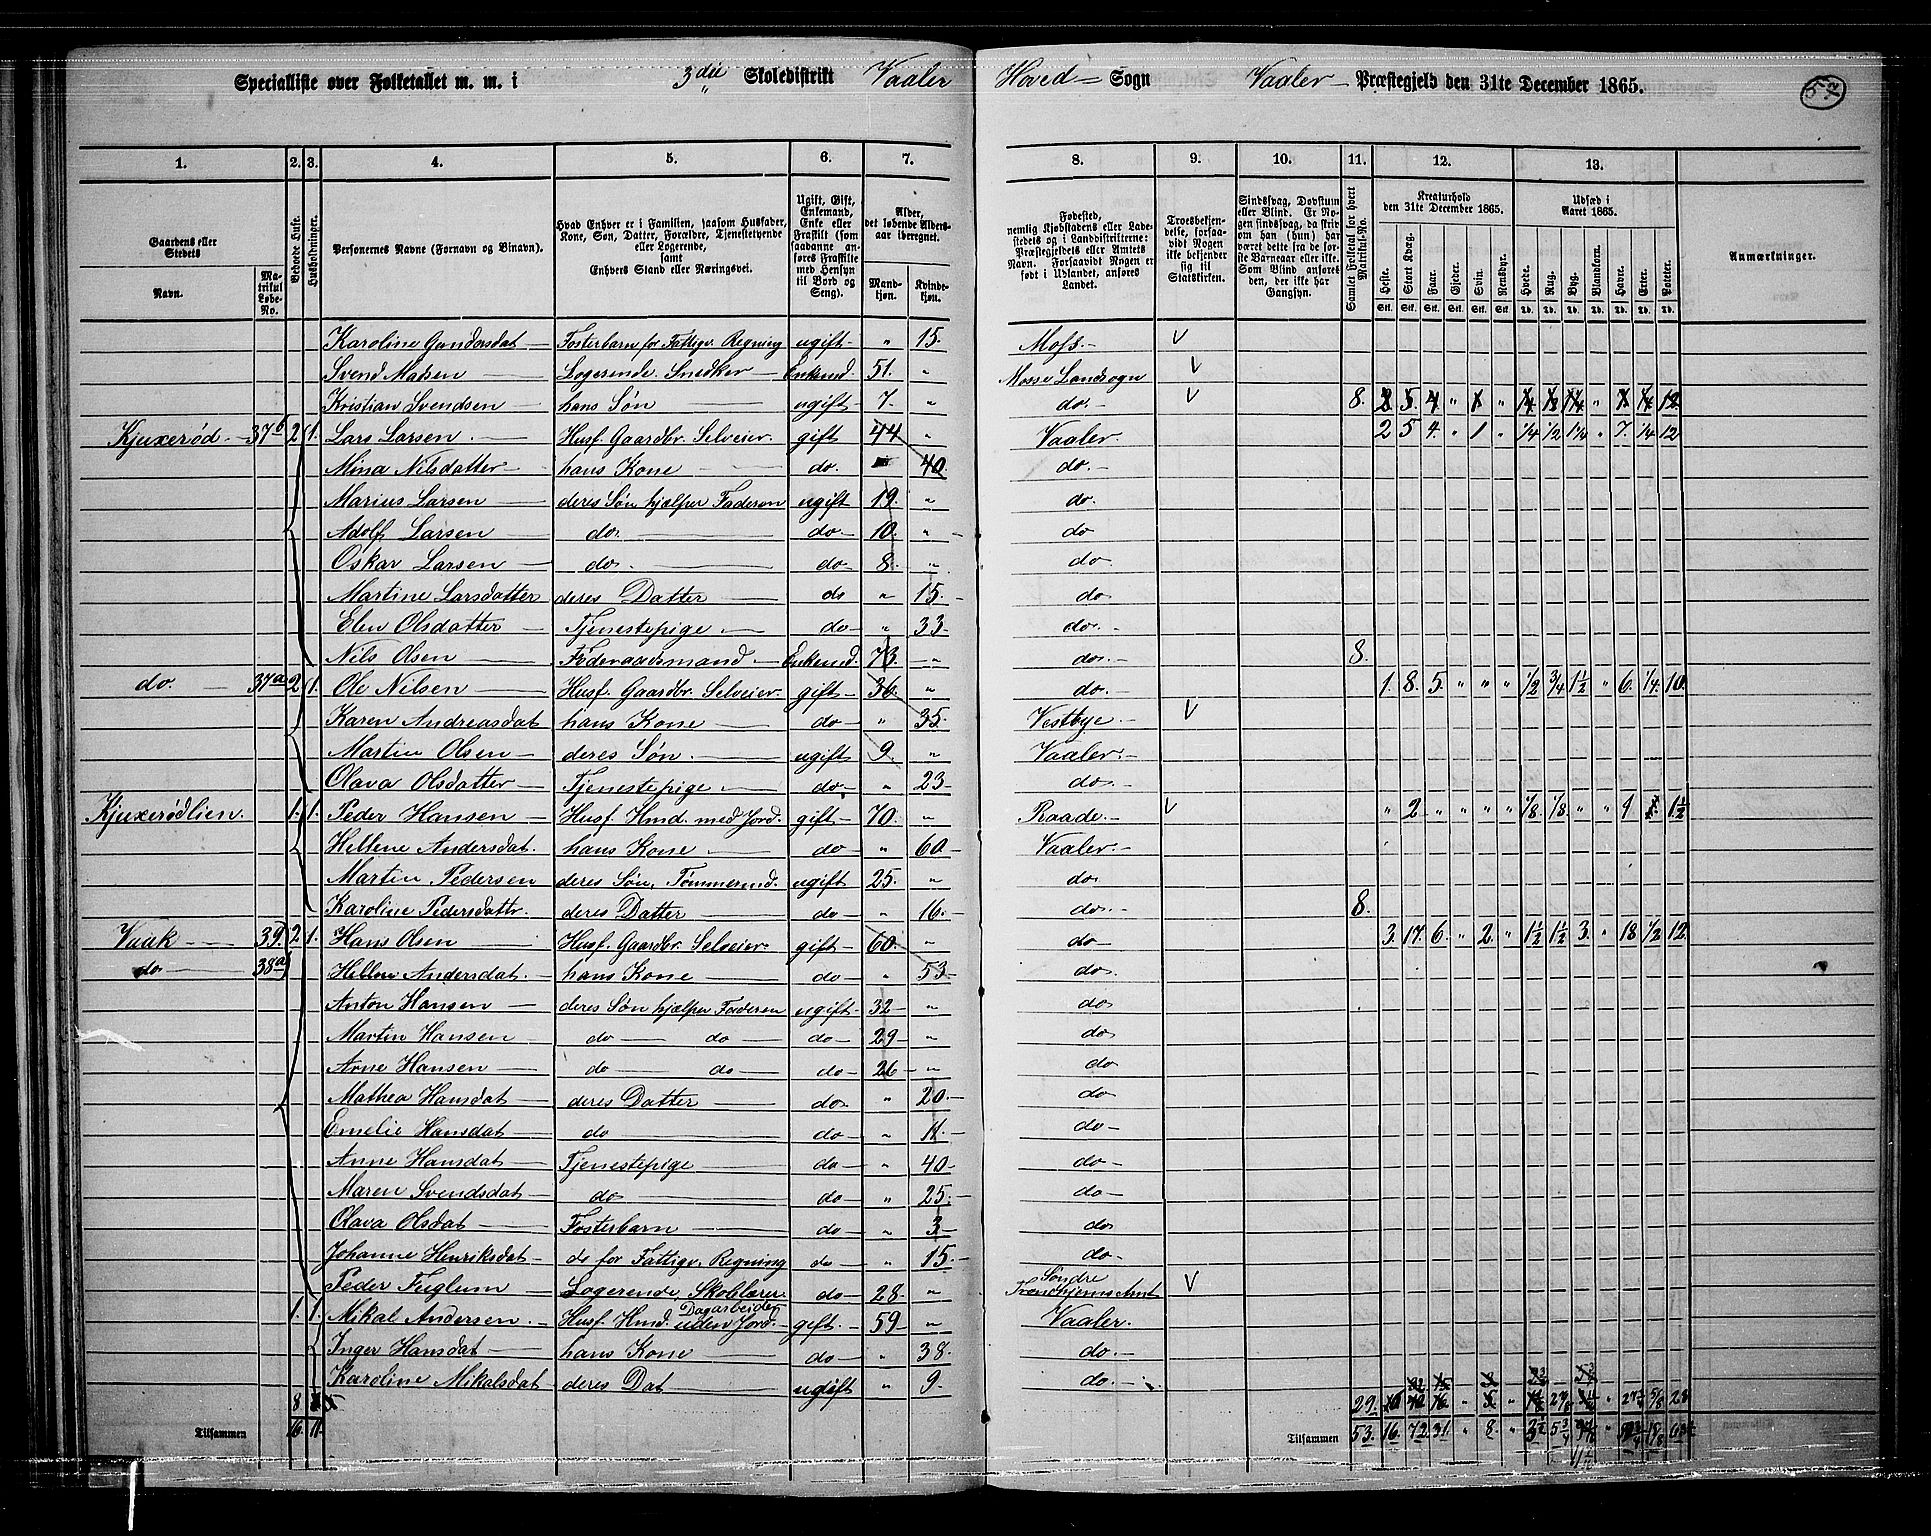 Specialliste over Folketallet m. m. i 3die Skoledistrikt Vaaler Hoved Sogn Vaaler Præstegjeld den 31te December 1865. 57
1. 2. 3. 4. 5. 6. 7. 8. 9. 10. 11. 12. 13.
Gaardens eller Stedets Navn. Matrikul Løbe-No. Beboede Huse. Husholdninger. Personernes Navne (Fornavn og Binavn).
Hvad Enhver er i Familien, saasom Husfader, Kone, Søn, Datter, Forældre, Tjenestetyende eller Logerende, samt Enhvers Stand eller Næringsvei.
Ugift, Gift, Enkemand, Enke eller Fraskilt (som saadanne anføres Fraskilte med Hensyn til Bord og Seng).
Alder, det løbende Aldersaar iberegnet. Mandkjøn. Kvindekjøn.
Fødested, nemlig Kjøbstadens eller Ladestedets og i Landdistrikterne: Præstegjeldets eller Amtets Navn. Forsaavidt Nogen er født i Udlandet, anføres Landet.
Troesbekjendelse, forsaavidt Nogen ikke bekjender sig til Statskirken.
Sindssvag, Døvstum eller Blind. Er Nogen sindssvag, da skrives om han (hun) har været dette fra de første Barneaar eller ikke. Som Blind anføres den, der ikke har Gangsyn.
Samlet Folketal for hvert Matrikul-No.
Kreaturhold den 31te December 1865. Heste. Stort Kvæg. Faar. Gjeder. Svin. Rensdyr.
Udsæd i Aaret 1865. Hvede. Rug. Byg. Blandkorn. Havre. Erter. Poteter.
Anmærkninger.
Karoline Gundersdat Fosterbarn for Fattigv. Regning ugift " 15. Moss. V
Svend Madsen Logerende. Snedker Enkemd. 51. " Mosse Landsogn V
Kristian Svendsen hans Søn ugift 7. " do. V 8. 2 5. 4 " 1 "
Kjuxerød 37b 2 1. Lars Larsen Husf. Gaardbr. Selveier. gift 44 " Vaaler. 2 5 4. " 1 " 1/4 1/2 1 1/4 " 7. 1/4 12
Mina Nilsdatter hans Kone do. 40 do.
Marius Larsen deres Søn hjælper Faderen ugift 19. " do.
Adolf Larsen do. do. 10. " do
Oskar Larsen do. do 8. " do
Martine Larsdatter deres Datter do " 15. do
Elen Olsdatter Tjenestepige do " 33 do.
Nils Olsen Føderaadsmand Enkemd. 73. " do. 8.
do. 37a 2 1. Ole Nilsen Husf. Gaardbr. Selveier gift 36. " do. 1. 8. 5. " " " 1/2 3/4 1 1/2 " 6. 1/4. 10.
Karen Andreasdat hans Kone do " 35. Vestbye. V
Martin Olsen deres Søn. ugift 9. " Vaaler.
Olava Olsdatter Tjenestepige do. " 23 do.
Kjuxerødlien. 1. 1. Peder Hansen Husf. Hmd. med Jord. gift 70. " Raade. V " 2 " " " " 1/8 1/8. " " 4 1 1/2
Hellene Andersdat. hans Kone do " 60 Vaaler.
Martin Pedersen deres Søn, Tømmermd. ugift 25. " do
Karoline Pedersdattr. deres Datter do " 16. do. 8.
Vaak 39. 2 1. Hans Olsen Husf. Gaardbr. Selveier gift 60. " do 3. 17. 6. " 2. " 1 1/2 1 1/2 3. " 18 1/2 12.
do 38a Hellen Andersdat. hans Kone do " 53 do
Anton Hansen deres Søn hjælper Faderen ugift 32 " do
Martin Hansen do do do 29 " do
Arne Hansen do do do 26 " do
Mathea Hansdat deres Datter do. " 20. do
Emelie Hansdat do do " 11. do
Anne Hansdat Tjenestepige do " 40 do
Maren Svendsdat do do " 25. do
Olava Olsdat Fosterbarn do " 3 do
Johanne Henriksdat do for Fattigv. Regning do " 15. do
Peder Fuglum Logerende, Skolelærer do 28. " Søndre Trondhjems Amt V
1. 1. Mikal Andersen. Husf. Hmd. uden Jord. Dagarbeider gift. 59 " Vaaler.
Inger Hansdat hans Kone do " 38. do.
Karoline Mikalsdat deres Dat ugift " 9. do.
8 29.
Tilsammen 16. 11. Tilsammen 53. 16. 72. 31. " 8. "